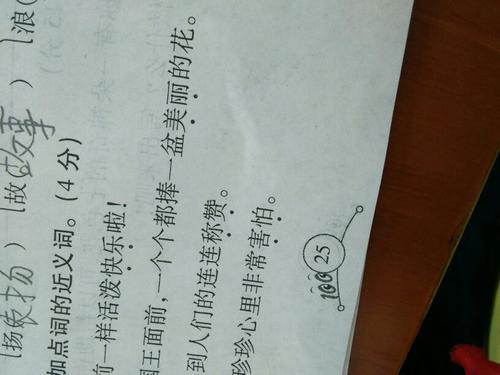 扬 扬 ) 故(故事 ) 浪(
加点词的近义词。(4分)
前一样活泼快乐啦!
国王面前,一个个都捧一盆美丽的花。
到人们的连连称赞。
珍珍心里非常害怕。
100 25